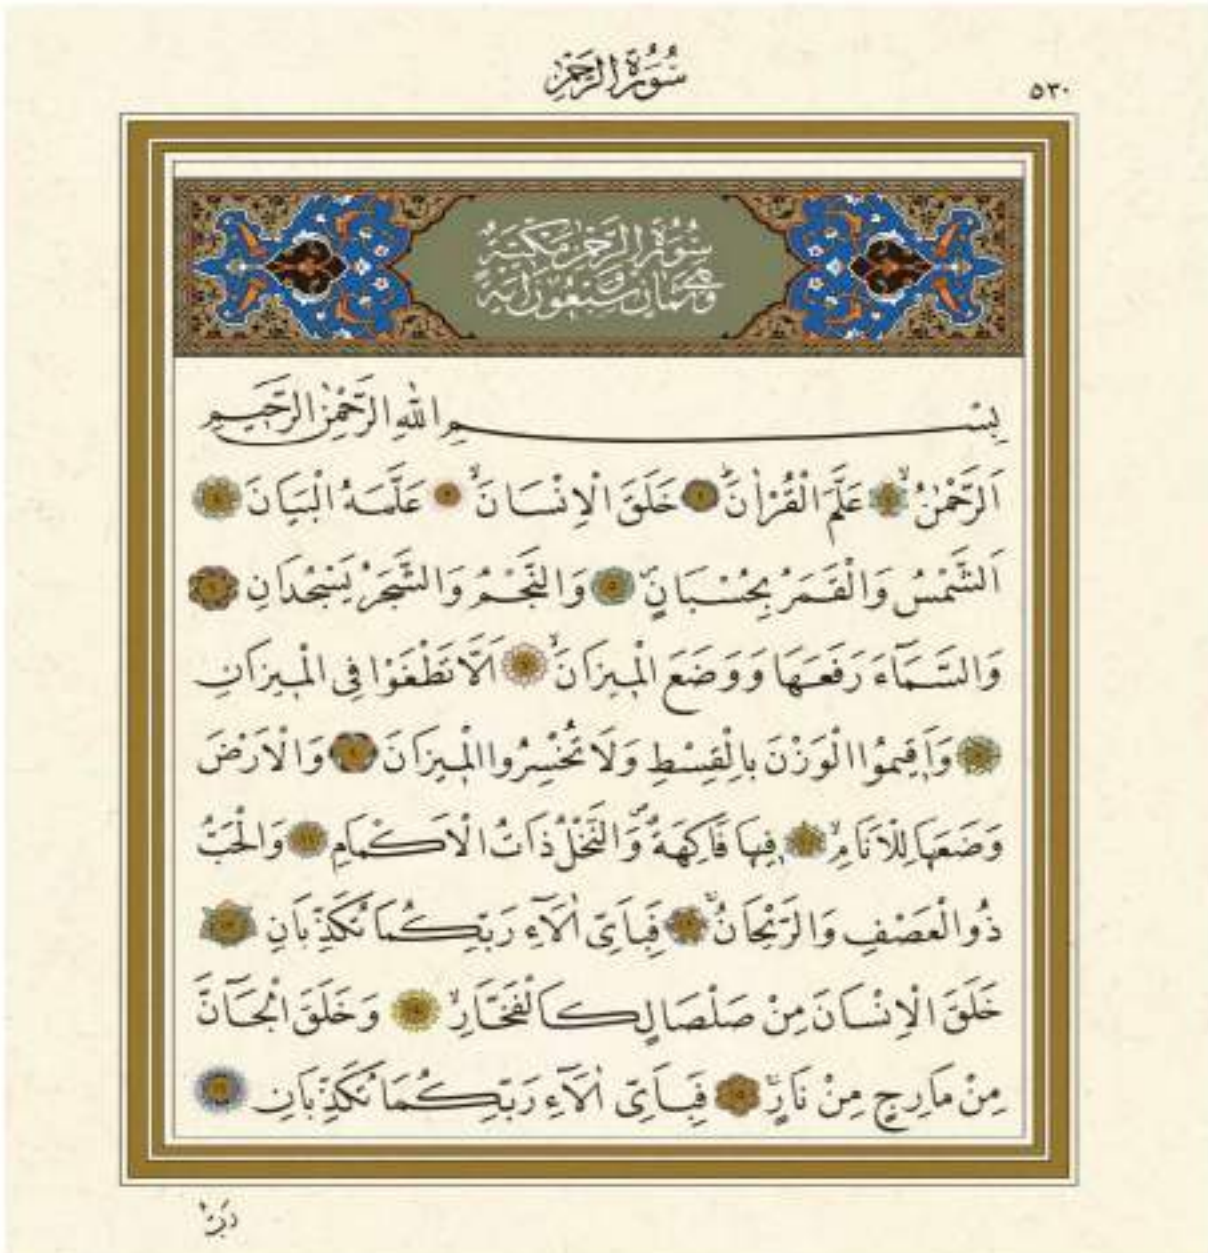 سُورَةُ الرَّحْمٰنِ
٥٣٠
سُورَةُ الرَّحْمٰنِ مَكِّيَّةٌ
وَهِيَ ثَمَانٍ وَسَبْعُونَ اٰيَةً
بِسْمِ اللّٰهِ الرَّحْمٰنِ الرَّحِيمِ
اَلرَّحْمٰنُۙ ١ عَلَّمَ الْقُرْاٰنَۜ ٢ خَلَقَ الْاِنْسَانَۙ ٣ عَلَّمَهُ الْبَيَانَ ٤
اَلشَّمْسُ وَالْقَمَرُ بِحُسْبَانٍۖ ٥ وَالنَّجْمُ وَالشَّجَرُ يَسْجُدَانِ ٦
وَالسَّمَٓاءَ رَفَعَهَا وَوَضَعَ الْمِيزَانَۙ ٧ اَلَّا تَطْغَوْا فِى الْمِيزَانِ
٨ وَاَقِيمُوا الْوَزْنَ بِالْقِسْطِ وَلَا تُخْسِرُوا الْمِيزَانَ ٩ وَالْاَرْضَ
وَضَعَهَا لِلْاَنَامِۙ ١٠ فِيهَا فَاكِهَةٌۖ وَالنَّخْلُ ذَاتُ الْاَكْمَامِ ١١ وَالْحَبُّ
ذُو الْعَصْفِ وَالرَّيْحَانُۚ ١٢ فَبِاَىِّ اٰلَٓاءِ رَبِّكُمَا تُكَذِّبَانِ ١٣
خَلَقَ الْاِنْسَانَ مِنْ صَلْصَالٍ كَالْفَخَّارِۙ ١٤ وَخَلَقَ الْجَٓانَّ
مِنْ مَارِجٍ مِنْ نَارٍۚ ١٥ فَبِاَىِّ اٰلَٓاءِ رَبِّكُمَا تُكَذِّبَانِ ١٦
رَبُّ